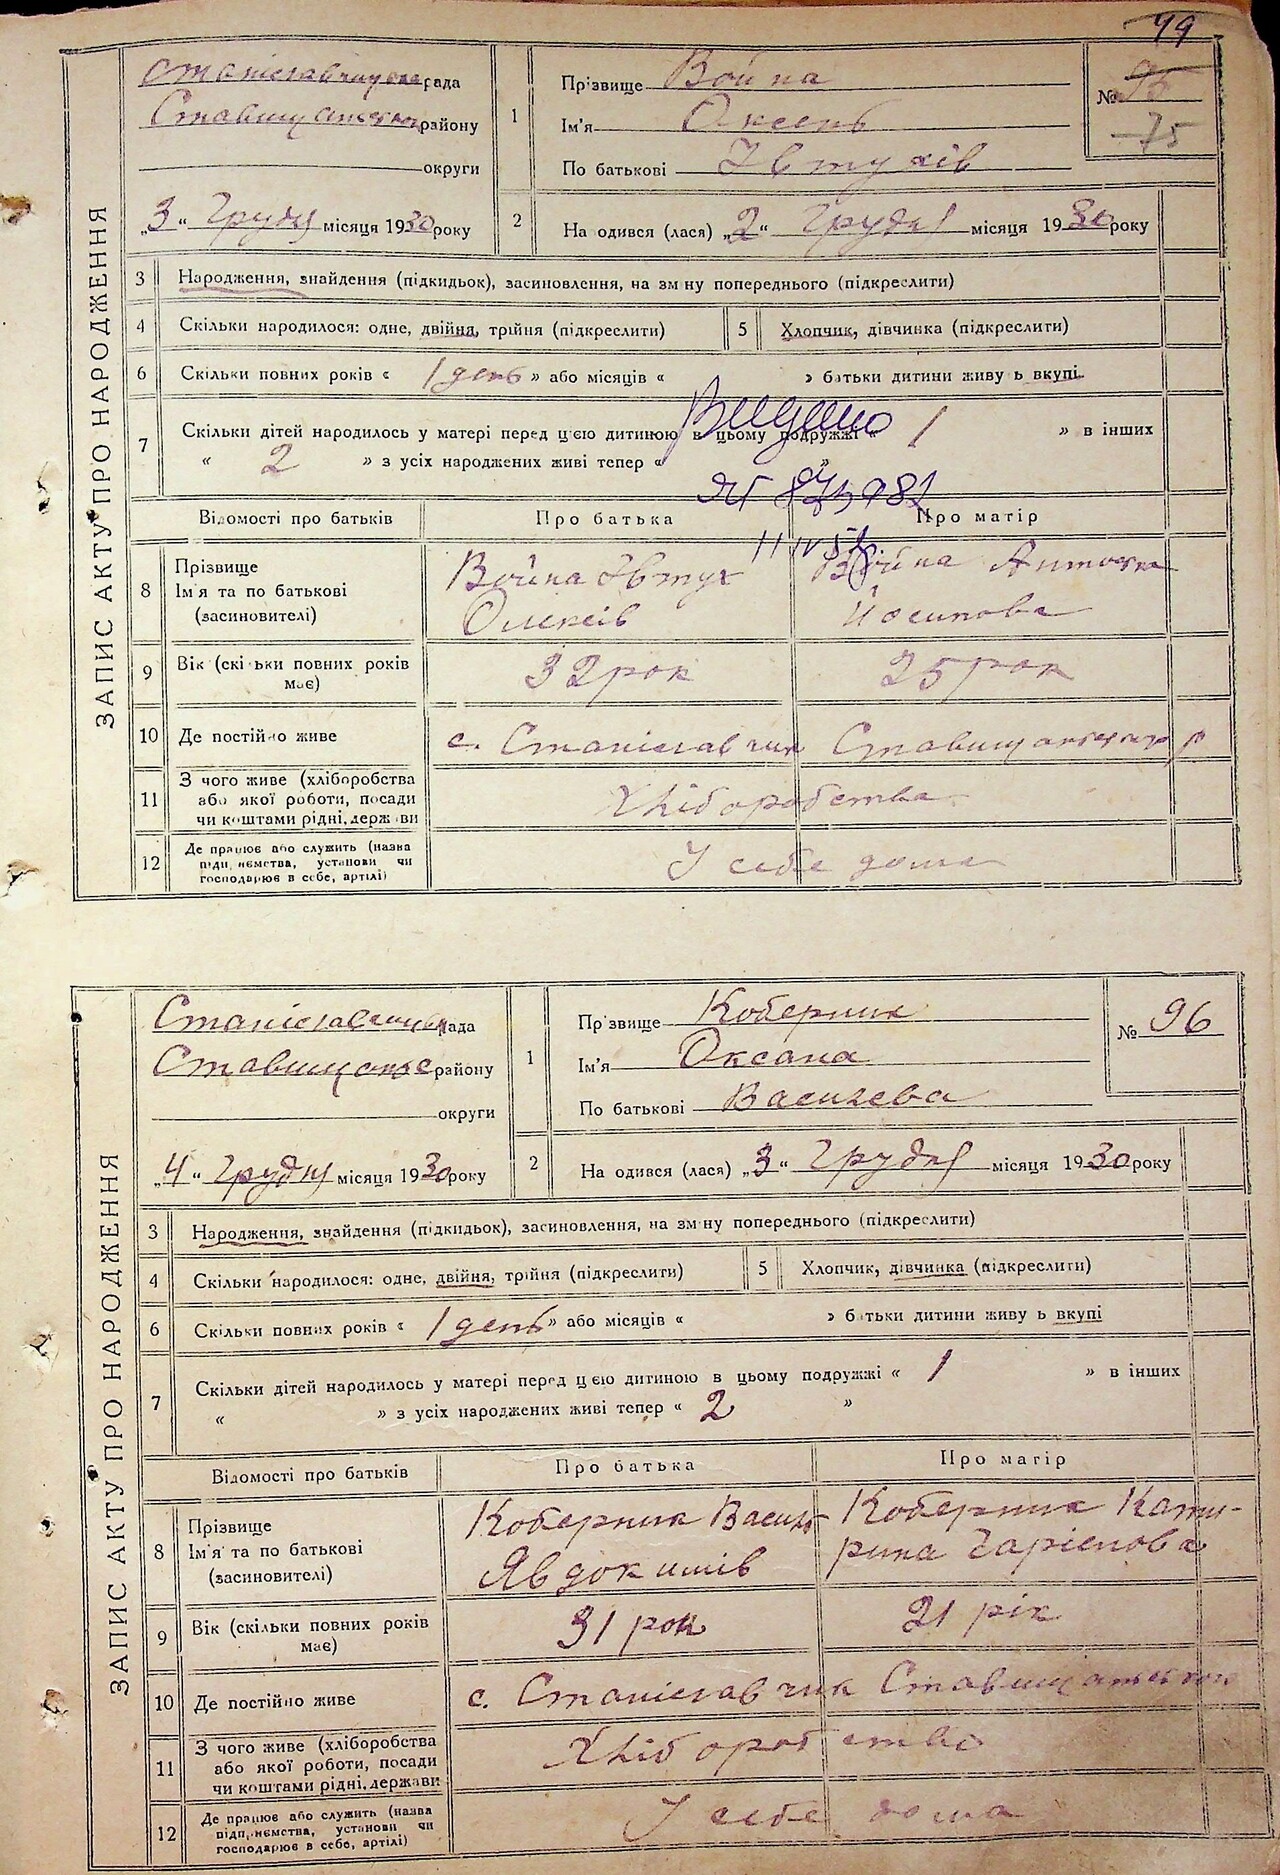 49
ЗАПИС АКТУ ПРО НАРОДЖЕННЯ
Станіславчицька рада
Ставищанського району
округи
„3“ Грудня місяця 1930 року
1
Прізвище Война
Ім'я Оксень
По батькові Івтухів
№ 95
75
2
На одився (лася) „2“ Грудня місяця 1930 року
3 Народження, знайдення (підкидьок), засиновлення, на зм ну попереднього (підкреслити)
4 Скільки народилося: одне, двійня, трійня (підкреслити)
5 Хлопчик, дівчинка (підкреслити)
6 Скільки повних років « 1 день » або місяців « » батьки дитини живу ь вкупі
7 Скільки дітей народилось у матері перед цією дитиною в цьому подружжі « 1 » в інших
« 2 » з усіх народжених живі тепер « »
Видано
11 IV
Відомості про батьків Про батька Про матір
8 Прізвище
Ім'я та по батькові
(засиновителі)
Война Івтух
Олексів
Война Антоська
Йосипова
9 Вік (скі ьки повних років
має)
32 рок
25 рок
10 Де постійно живе с. Станіславчик Ставищанського р
11 З чого живе (хліборобства
або якої роботи, посади
чи коштами рідні, держави
Хліборобства
12 Де працює або служить (назва
підп ємства, установи чи
господарює в себе, артілі)
У себе дома
ЗАПИС АКТУ ПРО НАРОДЖЕННЯ
Станіславчицька рада
Ставищанс району
округи
„4“ Грудня місяця 1930 року
1
Пр звище Коберник
Ім'я Оксана
По батькові Василева
№ 96
2
На одився (лася) „3“ Грудня місяця 1930 року
3 Народження, знайдення (підкидьок), засиновлення, на зм ну попереднього (підкреслити)
4 Скільки народилося: одне, двійня, трійня (підкреслити)
5 Хлопчик, дівчинка (підкреслити)
6 Скільки повних років « 1 день » або місяців « » батьки дитини живу ь вкупі
7 Скільки дітей народилось у матері перед цією дитиною в цьому подружжі « 1 » в інших
« » з усіх народжених живі тепер « 2 »
Відомості про батьків Про батька Про матір
8 Прізвище
Ім'я та по батькові
(засиновителі)
Коберник Васил
Явдокимів
Коберник Кати-
рина
9 Вік (скільки повних років
має)
31 рок
21 рік
10 Де постійно живе с. Станіславчик Ставищанського
11 З чого живе (хліборобства
або якої роботи, посади
чи коштами рідні, держави
Хліборобство
12 Де працює або служить (назва
підп ємства, установи чи
господарює в себе, артілі)
У себе дома